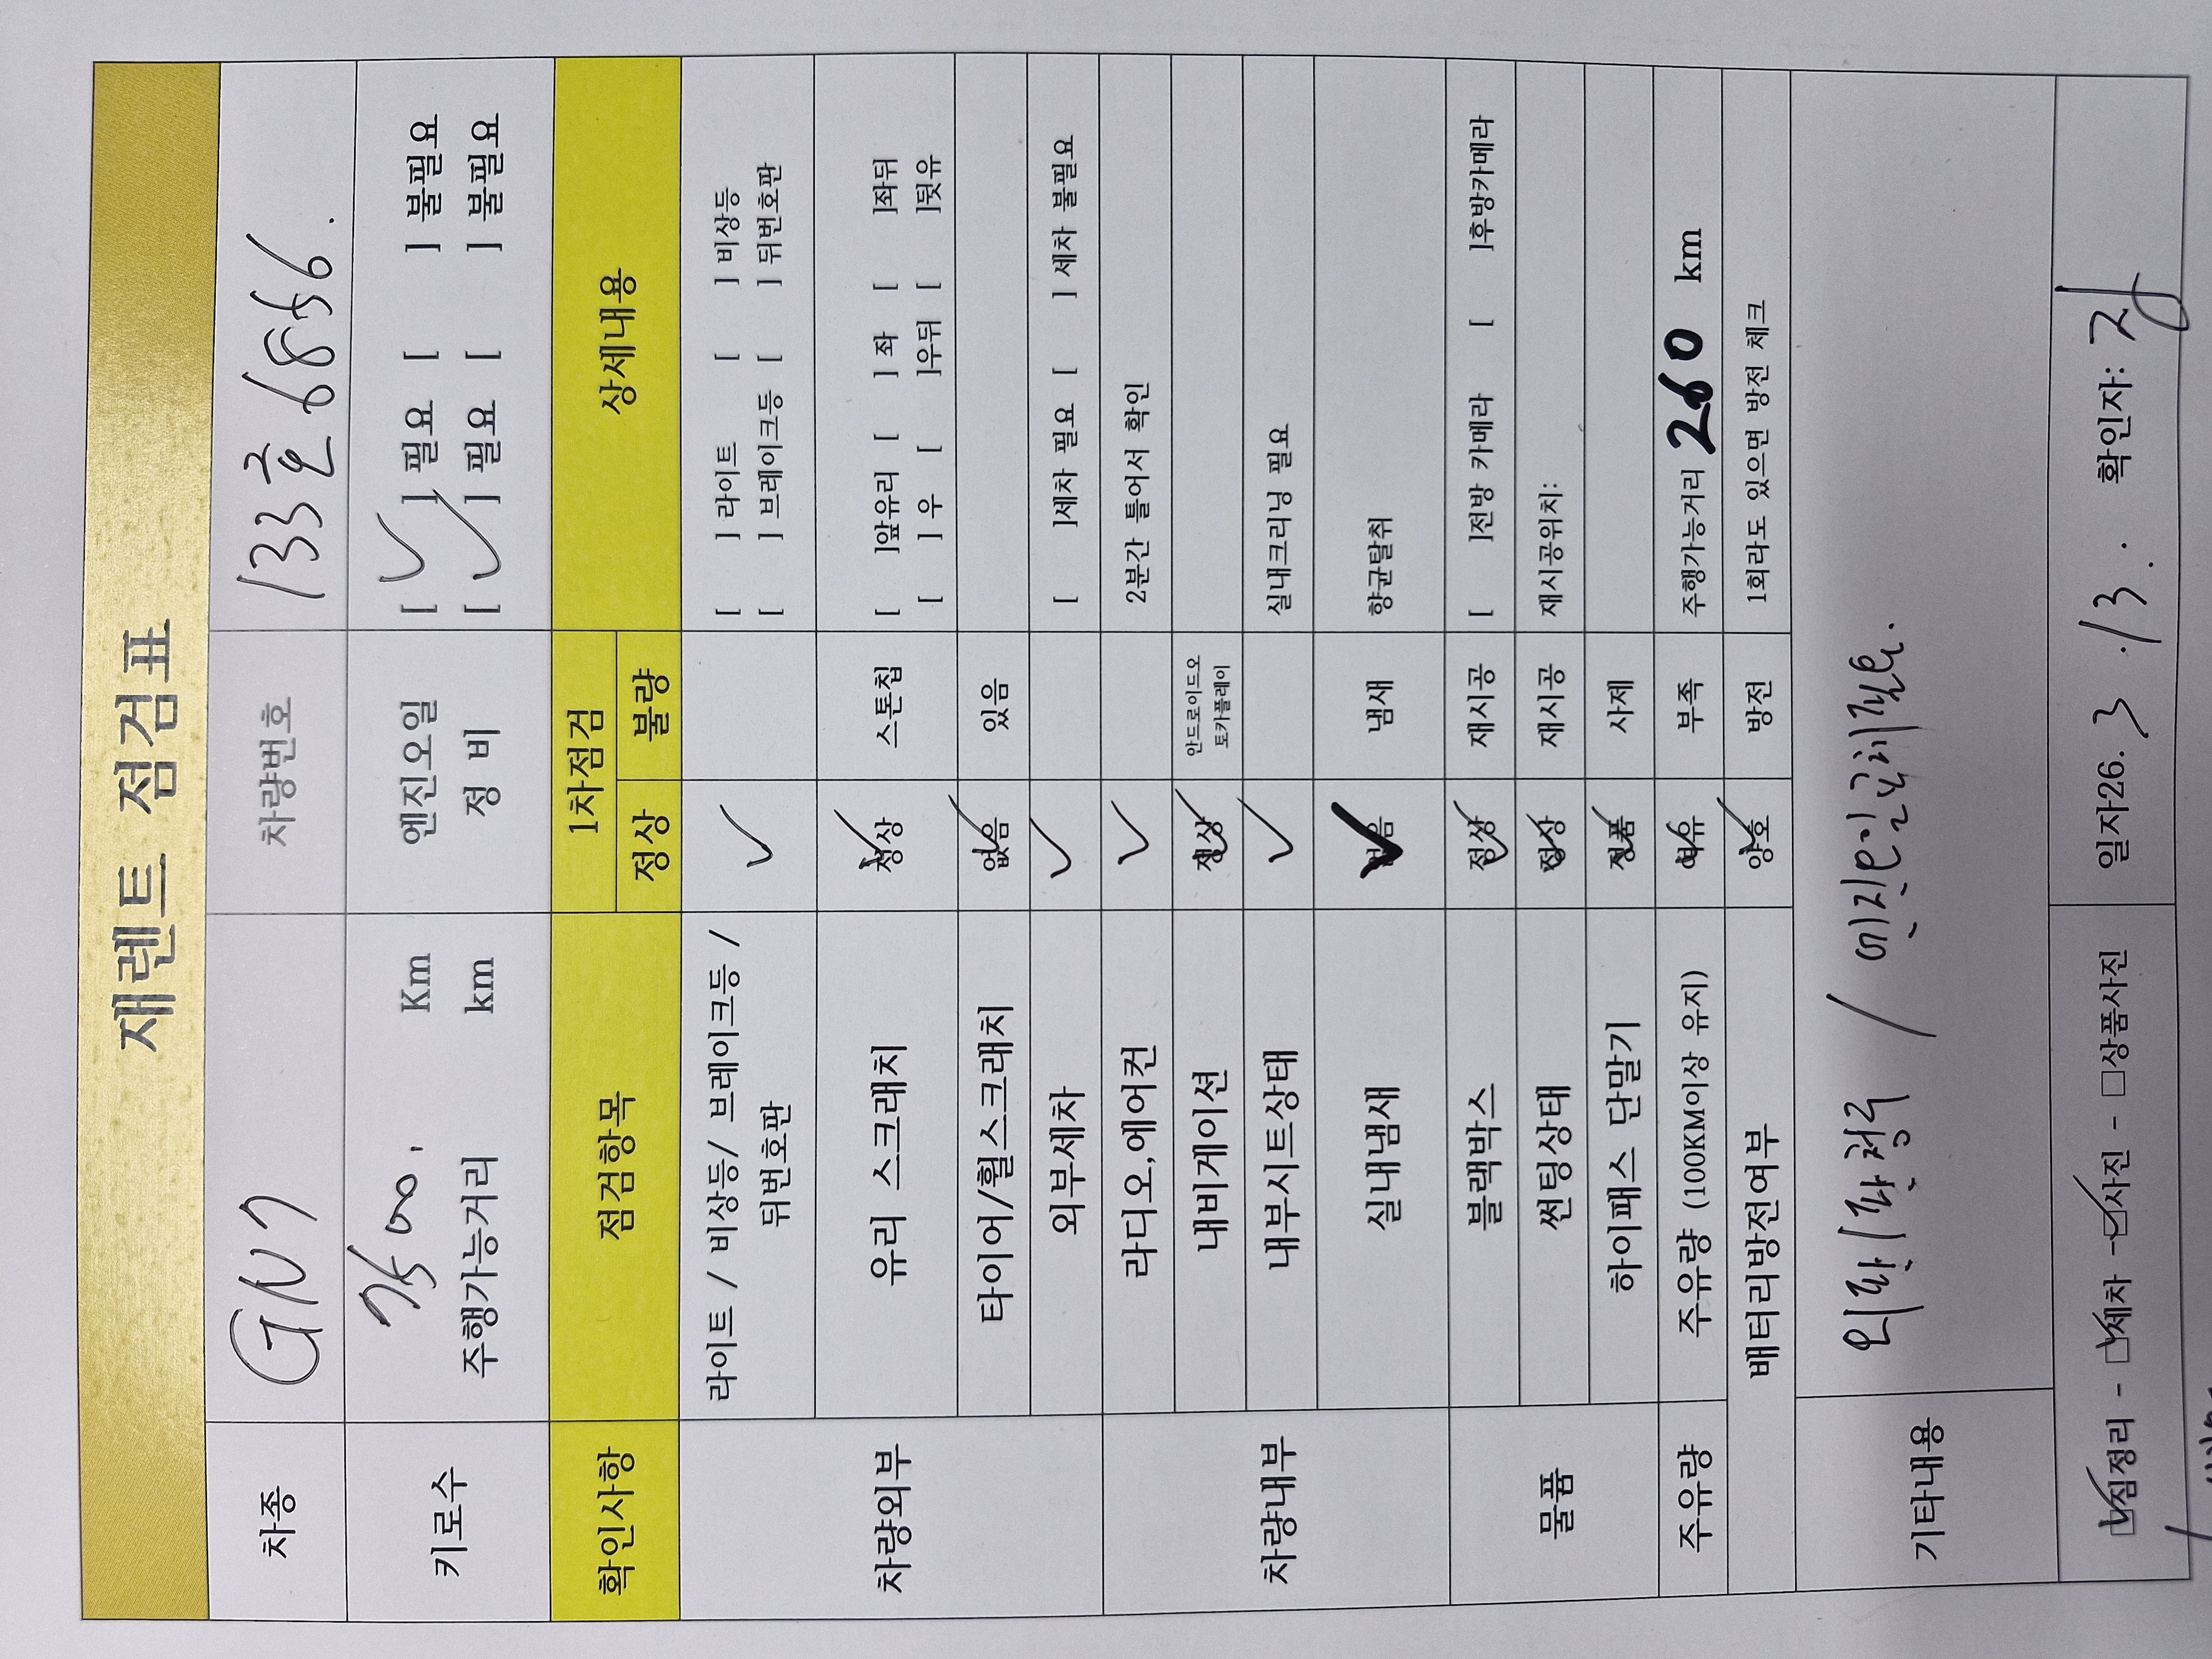 재렌트 점검표
차종 GN7 차량번호 133호 6856.
키로수 Km 엔진오일 [ ✓ ] 필요 [ ] 불필요
주행가능거리 km 정 비 [ ✓ ] 필요 [ ] 불필요
확인사항 점검항목 1차점검 상세내용
정상 불량
차량외부 라이트 / 비상등/ 브레이크등 / 뒤번호판 ✓ [ ] 라이트 [ ] 비상등
[ ] 브레이크등 [ ] 뒤번호판
유리 스크래치 정상 ✓ 스톤칩 [ ]앞유리 [ ] 좌 [ ]좌뒤
[ ] 우 [ ]우뒤 [ ]뒷유
타이어/휠스크래치 없음 ✓ 있음
외부세차 ✓ [ ]세차 필요 [ ] 세차 불필요
차량내부 라디오,에어컨 ✓ 2분간 틀어서 확인
내비게이션 정상 ✓ 안드로이드오
토카플레이
내부시트상태 ✓ 실내크리닝 필요
실내냄새 없음 ✓ 냄새 향균탈취
물품 블랙박스 정상 ✓ 재시공 [ ]전방 카메라 [ ]후방카메라
썬팅상태 정상 ✓ 재시공 재시공위치:
하이패스 단말기 정품 ✓ 사제
주유량 주유량 (100KM이상 유지) 여유 ✓ 부족 주행가능거리 260 km
배터리방전여부 양호 ✓ 방전 1회라도 있으면 방전 체크
기타내용 외판1판청구 / 엔진오일교체필요.
☑짐정리 - ☑세차 - ☑사진 - □상품사진 일자26. 3 . 13 . 확인자: